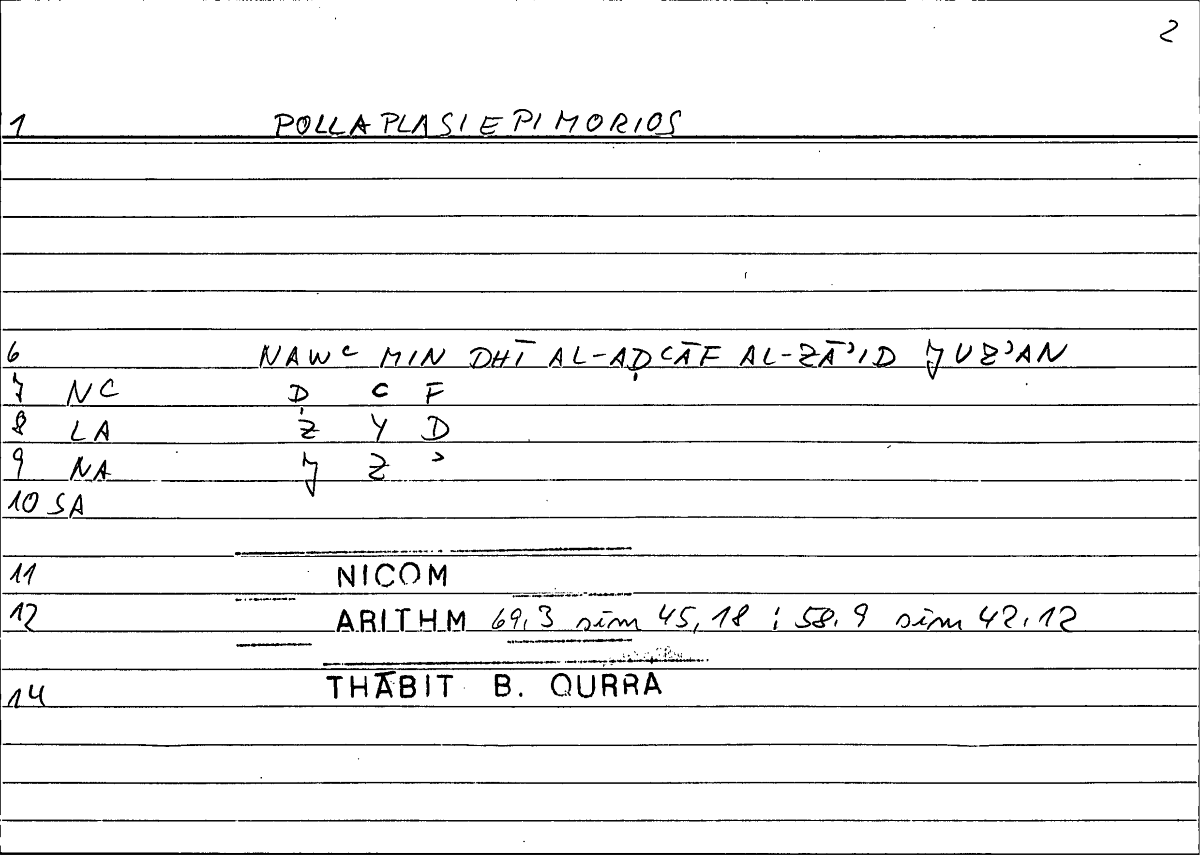 2
1 POLLAPLASIEPIMORIOS
6 NAWC MIN DHĪ AL-AḌCĀF AL-ZĀʾID JUZʾAN
7 NC Ḍ C F
8 LA Z Y D
9 NA J Z ʾ
10 SA
11 NICOM
12 ARITHM 69,3 sim 45,18 ; 58,9 sim 42,12
14 THĀBIT B. QURRA